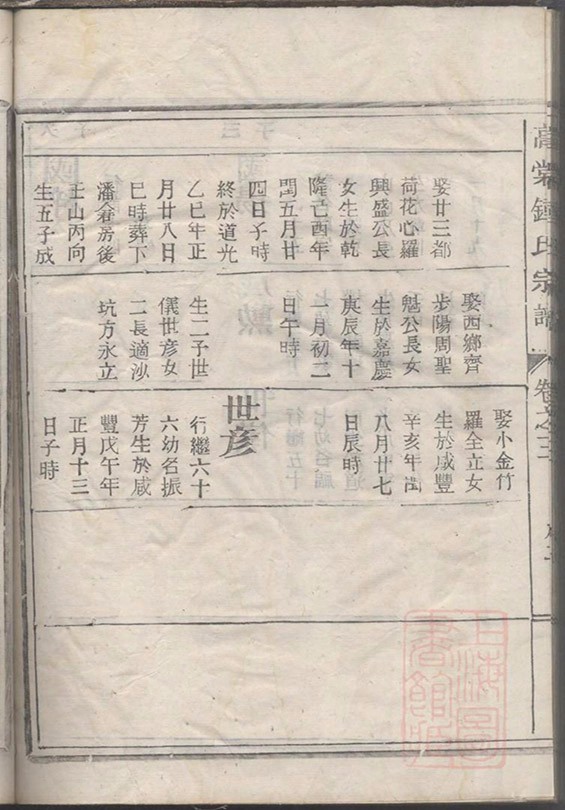 高棠鍾氏宗譜
卷之三
娶廿三都
荷花心羅
興盛公長
女生於乾
隆己酉年
閏五月廿
四日子時
終於道光
乙巳年正
月廿八日
巳時葬下
潘畲房後
壬山丙向
生五子成
娶西鄉齊
步陽周聖
魁公長女
生於嘉慶
庚辰年十
一月初二
日午時
生二子世
儀世彥女
二長適沙
坑方永立
娶小金竹
羅全立女
生於咸豐
辛亥年閏
八月廿七
日辰時
世彥
行繼六十
六幼名振
芳生於咸
豐戊午年
正月十三
日子時
上海圖
書館藏